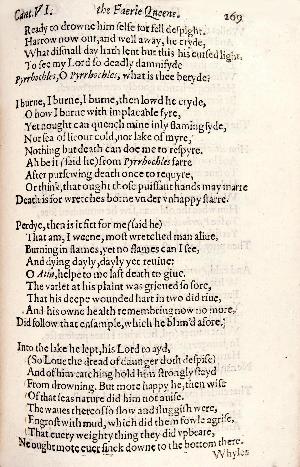 Cant. VI. the Faerie Queene. 269
Ready to drowne him selfe for fell despight.
Harrow now out, and well away, he cryde,
What dismall day hath lent but this his cursed light,
To see my Lord so deadly damnifyde
Pyrrhochles, O Pyrrhochles, what is thee betyde?
I burne, I burne, I burne, then lowd he cryde,
O how I burne with implacable fyre,
Yet nought can quench mine inly flaming syde,
Nor sea of licour cold, nor lake of myre,
Nothing but death can doe me to respyre.
Ah be it (said he) from Pyrrhochles farre
After pursewing death once to requyre,
Or think, that ought those puissant hands may marre
Death is for wretches borne vnder vnhappy starre.
Perdye, then is it fitt for me (said he)
That am, I weene, most wretched man aliue,
Burning in flames, yet no flames can I see,
And dying dayly, dayly yet reuiue:
O Atin, helpe to me last death to giue.
The varlet at his plaint was grieued so sore,
That his deepe wounded hart in two did riue,
And his owne health remembring now no more,
Did follow that ensample, which he blam'd afore.
Into the lake he lept, his Lord to ayd,
(So Loue the dread of daunger doth despise)
And of him catching hold him strongly stayd
From drowning. But more happy he, then wise
Of that seas nature did him not auise.
The waues thereof so slow and sluggish were,
Engrost with mud, which did them fowle agrise,
That euery weighty thing they did vpbeare,
Ne ought mote euer sinck downe to the bottom there.
Whyles